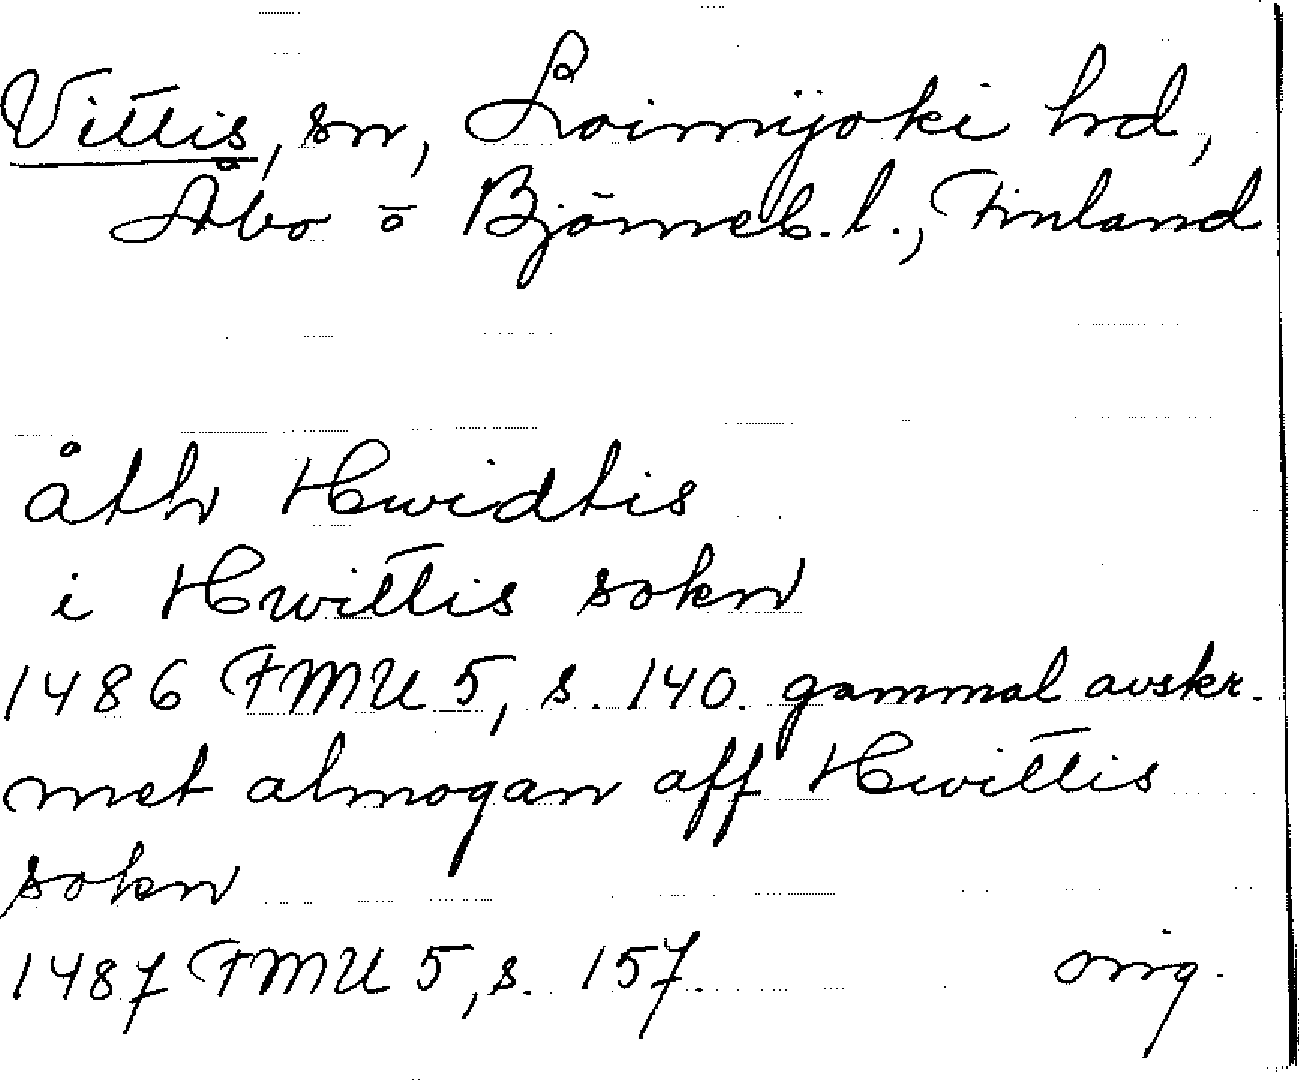 Vittis, sn, Loimijoki hd,
Åbo o Björneb. l., Finland
åth Hwidtis
i Hwittis sokn
1486 FMU 5, s. 140. gammal avskr.
met almogan aff Hwittis
sokn
1487 FMU 5, s. 157. orig.